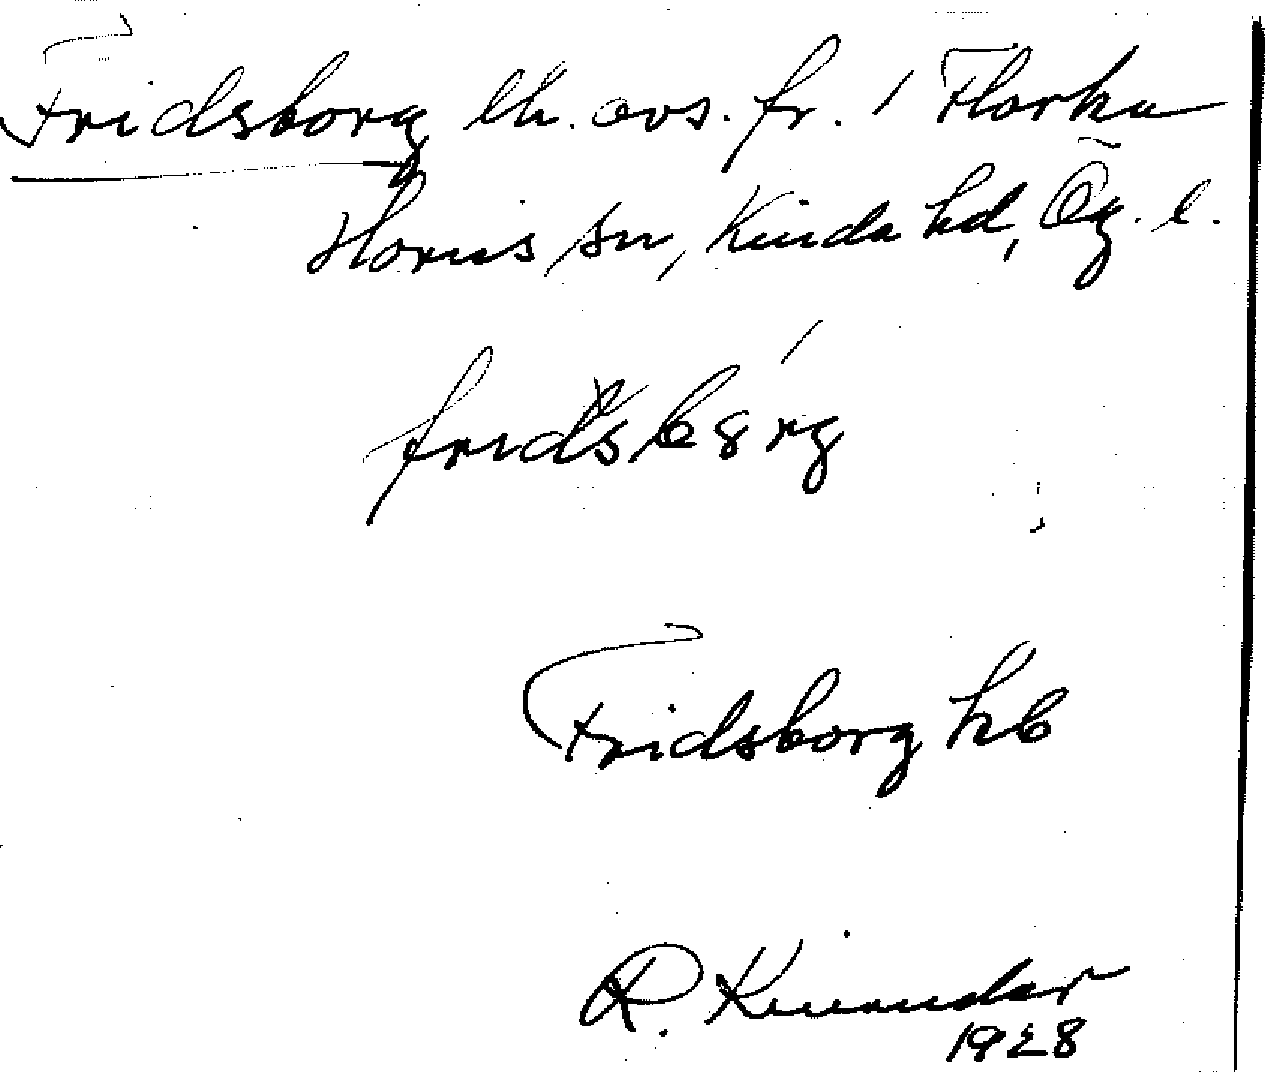 Fridsborg lh. avs. fr. 1 Florka
Horns sn, Kinda hd, Ög. l.
fridsbärg
Fridsborg hb
R. Kinander
1928